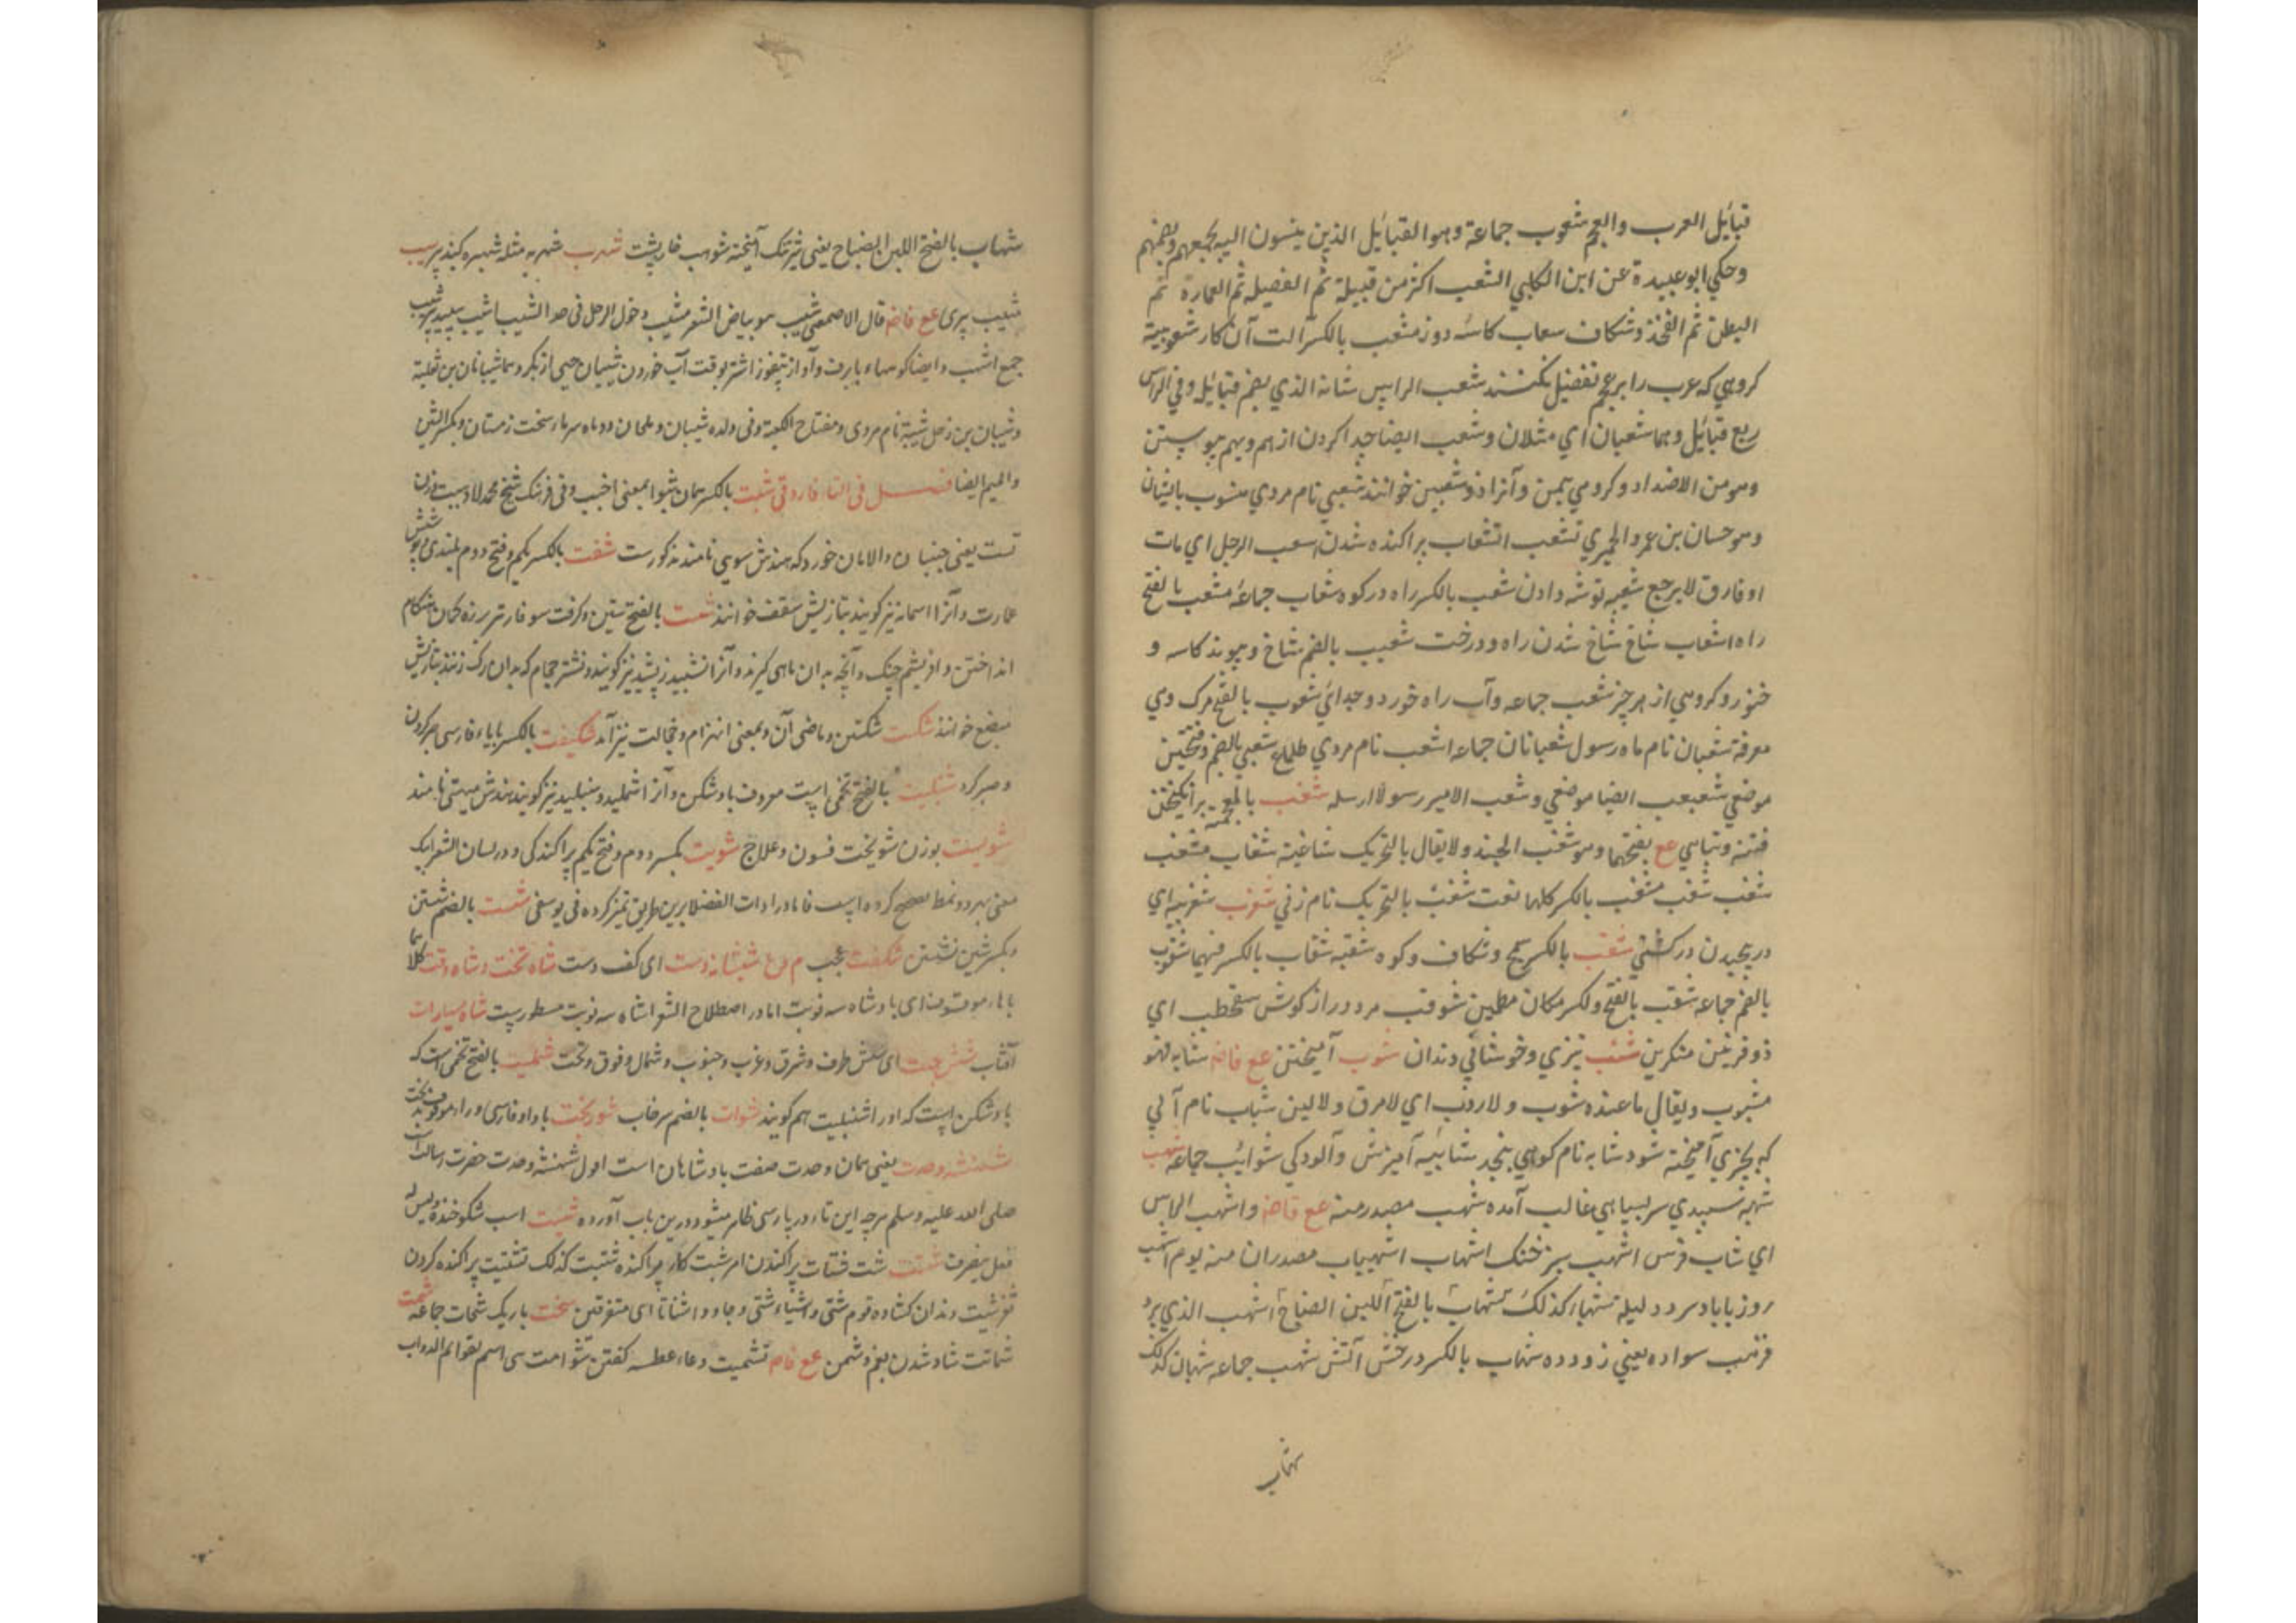 قبائل العرب والعجم شعوب جماعة وهو القبائل الذين ينسبون اليه يجمعهم ويضمهم
وحكي ابو عبيدة عن ابن الكلبي الشعب اكثر من قبيلة ثم الفصيله ثم العمارة ثم
البطن ثم الفخذ وشكاف سعاب كاسه دوز مشعب بالكسر الت آن كار شعوبية
كروهي كه عرب را بر عجم تفضيل نكنند شعب الراس شانه الذي يضم قبائل وفي الراس
ربع قبائل وهما شعبان اي مثلان وشعب ايضا جدا كردن از هم وبهم پيوستن
وهو من الاضداد وكروهي بيمن وآنرا ذو شعبين خوانند شعبي نام مردي منسوب بايشان
وهو حسان بن عمرو الحميري تشعب انشعاب پراكنده شدن اسعب الرجل اي مات
او فارق لا يرجع شعبه توشه دادن شعب بالكسر راه در كوه شعاب جماعه مشعب بالفتح
راه اشعاب شاخ شاخ شدن راه ودرخت شعيب بالضم شاخ وپيوند كاسه و
خنور وكروهي از هر چيز شعب جماعه وآب راه خورد وجدائي شعوب بالفتح مرك وهي
معرفة شعبان نام ماه رسول شعبانان جماعه اشعب نام مردي طماع شعبي بالضم وفتحتين
موضعي شعبعب ايضا موضعي وشعب الامير رسولا ارسله شغب بالمعجمه برانكيختن
فتنه وتباهي عع بفتحهما وهو شغب الجند ولا يقال بالتحريك شاغبته شغاب مشغب
شغب شغب مشغب بالكسر كلها نعت شغب بالتحريك نام زني شغرب شغربيه اي
در پيچيدن در كشتي شقب بالكسر وشكاف وكوه شقبه شقاب بالكسر فيهما شقوب
بالضم جماعه شقب بالفتح ولكسر مكان مطمين شوقب مرد دراز كوش سقحطب اي
ذو قرنين منكرين شنب تيزي وخوشابي دندان شوب آميختن عع فاضه شابه فهو
مشوب ويقال ما عنده شوب ولا روب اي لا مرق ولا لبن شباب نام آلي
كه بچيزي آميخته شود شابه نام كوهي بنجد شائبه آميزش وآلودكي شوايب جماعه شهب
شهبه سپيدي سر بسياهي غالب آمده شهب مصدر منه عع فاضه واشهب الراس
اي شاب فرس اشهب سبز خنك اشهاب اشهيباب مصدران منه يوم اشهب
روز با باد سرد ليلة شهباء كذلك شهاب بالفتح اللبن الضياح اشهب الذي برد
قرنب سواده يعني زودده شهاب بالكسر درخش آتش شهب جماعه شهبان كذلك
شهاب
شهاب بالفتح اللبن الضياح يعنى شير تنك آميخته شوهب خارپشت شهرب شهربه مثله شهبره كنده پير شيب
شيب پيرى عع فاضه قال الاصمعى شيب مو بياض الشعر مشيب دخول الرجل فى حد الشيب اشيب سپيد شيب
جمع اشيب وايضا كوهها با برف وآواز پتفوز اشتر بوقت آب خوردن شيبان حيى از بكر وهما شيبانان بن ثعلبة
وشيبان بن ذهل شيبة نام مردى ومفتاح الكعبة وفى ولده شيبان وملحان دو ماه سرماء سخت زمستان وبكسر الشين
والميم ايضا فصل فى التاء فارقى شبت بالكسر همان شبوا بمعنى اخبث وفى فرهنك شيخ محمد لاد
تست يعنى جنبان والابان خورد كه هندش سوى نامند مذكورست شفت بالكسر يكم وفتح دوم بلندى پوشش
عمارت وآنرا اسمانه نيز كويند بتازيش سقف خوانند شست بالفتح ستين وكرفت سوفار تير برزه كمان هنكام
انداختن وابريشم چنك وآنچه بدان ماهى كيرند وآنرا نيز كويند ونشتر حجام كه بدان رك زنند بتازيش
مبضع خوانند شكست شكستن وماضى آن وبمعنى انهزام وخجالت نيز آمد شكيفت بالكسر باياء فارسى صبر كردن
وصبر كرد شنبليت بالفتح تخمى است معروف بادشكن وآنرا شمليد وشنبليد نيز كويند هندش ميتهى نامند
شويست بوزن شويخت فسون وعلاج شويت بكسر دوم وفتح يكم پراكندكى ودر لسان الشعرا بيك
معنى بهر دو نمط تصحيح كرده است فاما در ادات الفضلا برين طريق تميز كرده فى يوسفى شست بالضم شستن
وبكسر شين نشستن شكفت عجب م مع شبشانه دست اى كف دست شاه تخت وشاه وقت كلاهما
باهاء موقوف اى بادشاه سه نوبت اما در اصطلاح الشعرا شاه سه نوبت مسطورست شاه سيارات
آفتاب شش جهت اى شش طرف وشرق وغرب وجنوب وشمال وفوق وتحت شمليت بالفتح تخمى است كه
بادشكن است كه اورا شنبليت هم كويند شوات بالضم سرخاب شوربخت باواو فارسى وراء موقوف بدبخت
شهنشه وحدت يعنى همان وحدت صفت بادشاهان است اول شهنشه وحدت حضرت رسالت
صلى الله عليه وسلم هرچه اين تاء در پارسى ظاهر ميشود درين باب آورده شئيت اسب شكوخنده وليس له
فعل يتصرف شتت شت شتات پراكندن امر شت كار پراكنده شتت كذلك تشتيت پراكنده كردن
ثغر شتيت دندان كشاده قوم شتى واشياء شتى وجاووا اشتاتا اى متفرقين شخت باريك شخات جماعة شمت
شماتت شاد شدن بغم دشمن عع فاضه تشميت دعاء عطسه كفتن شوامت هى اسم لقوائم الدواب